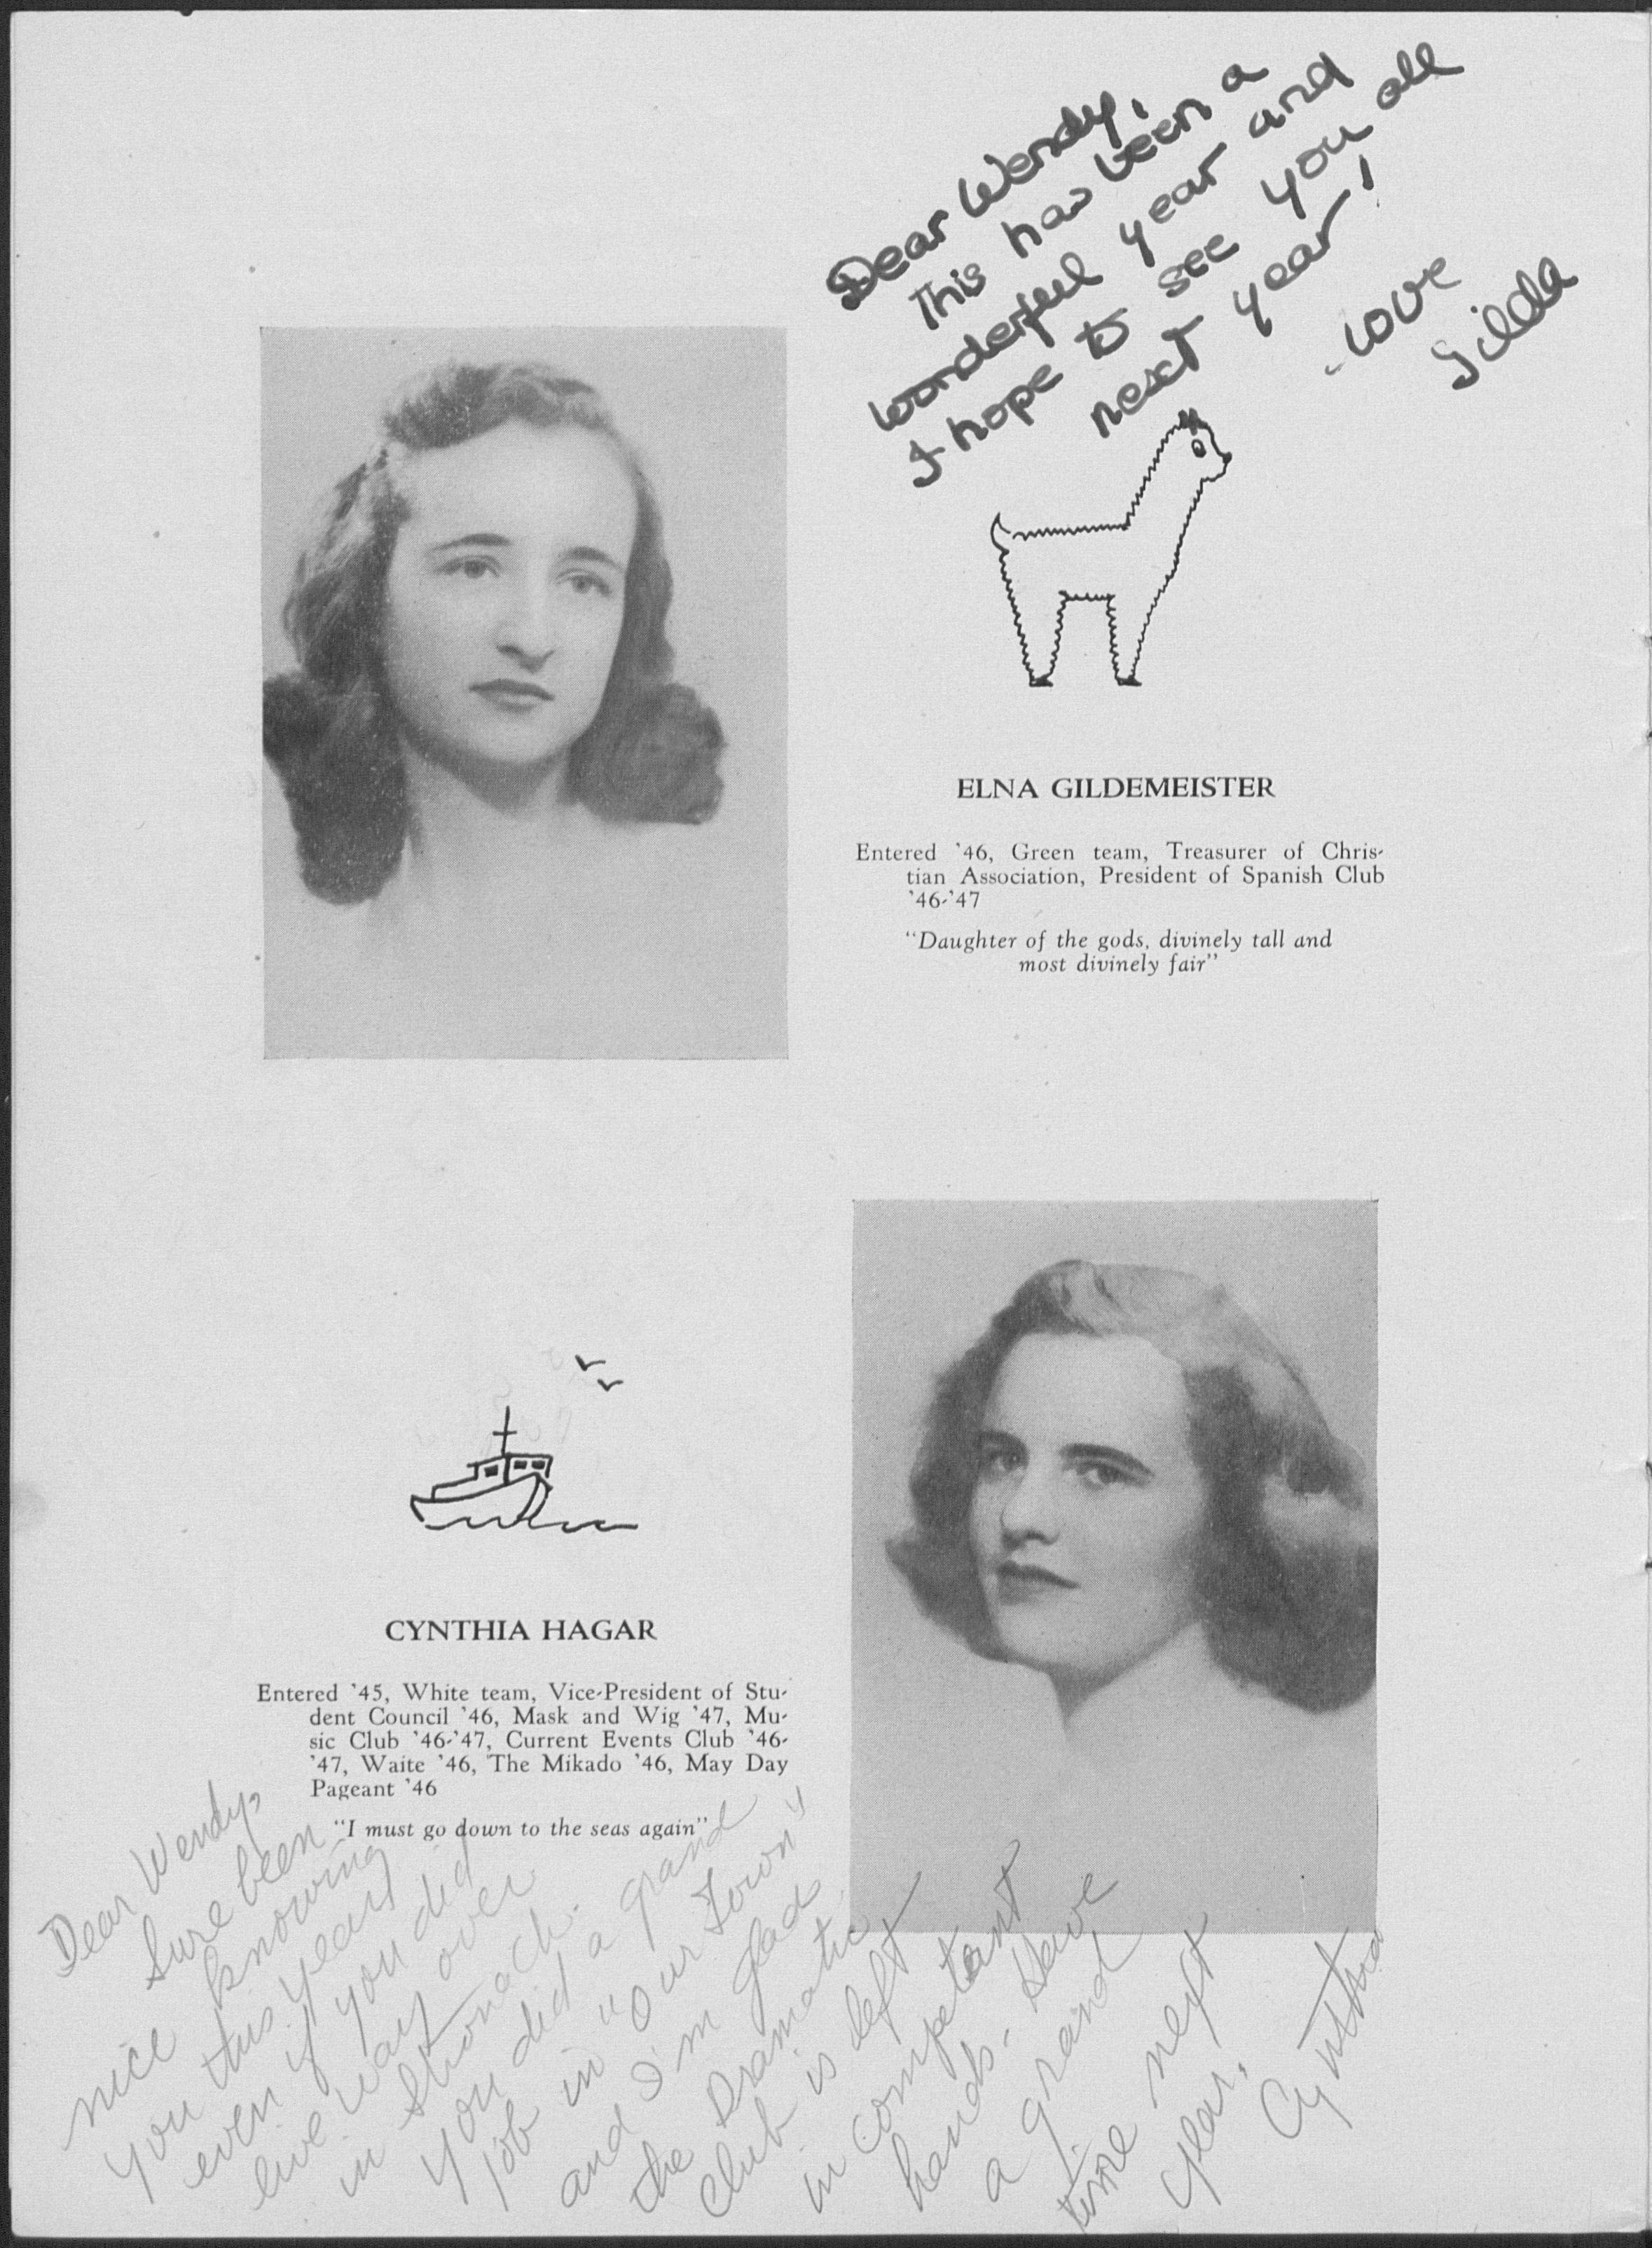 Dear Wendy,
This has been a
wonderful year and
I hope to see you all
next year!
-Love
Gilda
ELNA GILDEMEISTER
Entered '46, Green team, Treasurer of Chris-
tian Association, President of Spanish Club
'46-'47
"Daughter of the gods, divinely tall and
most divinely fair"
CYNTHIA HAGAR
Entered '45, White team, Vice-President of Stu-
dent Council '46, Mask and Wig '47, Mu-
sic Club '46-'47, Current Events Club '46-
'47, Waite '46, The Mikado '46, May Day
Pageant '46
"I must go down to the seas again"
Dear Wendy,
Sure been
nice knowing
you this year
even if you did
live way over
in Stronach.
You did a grand
job in "Our Town"
and I'm glad
the Dramatic
Club is left
in competant
hands. Have
a grand
time next
year.
Cynthia